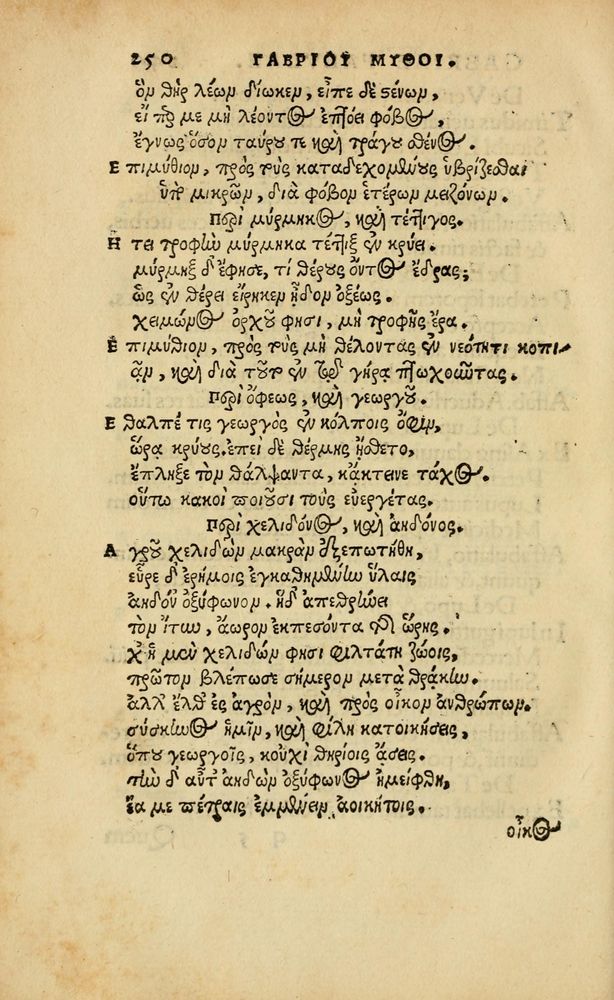 250 ΓΑΒΡΙΟΥ ΜΥΘΟΙ.
ὃν θὴρ λέων δίωκεν, εἶπε δὲ στένων,
εἴ περ με μὴ λέοντος ἐπτόει φόβος,
ἔγνως ὅσον ταύρου τε καὶ τράγου σθένος.
Ἐπιμύθιον, πρὸς τοὺς καταδεχομένους ὑβρίζεσθαι
ὑπὸ μικρῶν, διὰ φόβον ἑτέρων μειζόνων.
Περὶ μύρμηκος, καὶ τέττιγος.
Ἤτει τροφὴν μύρμηκα τέττιξ ἐν κρύει.
μύρμηξ δ' ἔφησε, τί θέρους ὄντος ἔδρας;
ὡς ἐν θέρει εἴρηκεν ᾖδον ὀξέως.
χειμῶνος ὀρχοῦ φησι, μὴ τροφῆς ἔρα.
Ἐπιμύθιον, πρὸς τοὺς μὴ θέλοντας ἐν νεότητι κοπι-
ᾷν, καὶ διὰ τοῦτο ἐν τῷ γήρᾳ πτωχοῦντας.
Περὶ ὄφεως, καὶ γεωργοῦ.
Ἔθαλπέ τις γεωργὸς ἐν κόλποις ὄφιν,
ὥρᾳ κρύους, ἐπεὶ δὲ θέρμης ᾔσθετο,
ἔπληξε τὸν θάλψαντα, κἄκτεινε τάχος.
οὕτω κακοὶ ποιοῦσι τοὺς εὐεργέτας.
Περὶ χελιδόνος, καὶ ἀηδόνος.
Ἀγροῦ χελιδὼν μακρὰν ἐξεπωτήθη,
εὗρε δ' ἐρήμοις ἐγκαθημένην ὕλαις
ἀηδόν' ὀξύφωνον. ἡ δ' ἀπεθρήνει
τὸν ἴτυν, ἄωρον ἐκπεσόντα τῆς ὥρης.
χ' ἡ μὲν χελιδών φησι φιλτάτη ζώοις,
πρῶτον βλέπω σε σήμερον μετὰ θρᾴκην.
ἀλλ' ἔλθ' ἐς ἀγρὸν, καὶ πρὸς οἶκον ἀνθρώπων.
σύσκηνος ἡμῖν, καὶ φίλη κατοικήσεις,
ὅπου γεωργοῖς, κοὐχὶ θηρίοις ᾄσεις.
τὴν δ' αὖτ' ἀηδὼν ὀξύφωνος ἠμείφθη,
ἔα με πέτραις ἐμμένειν ἀοικήτοις.
οἶκος